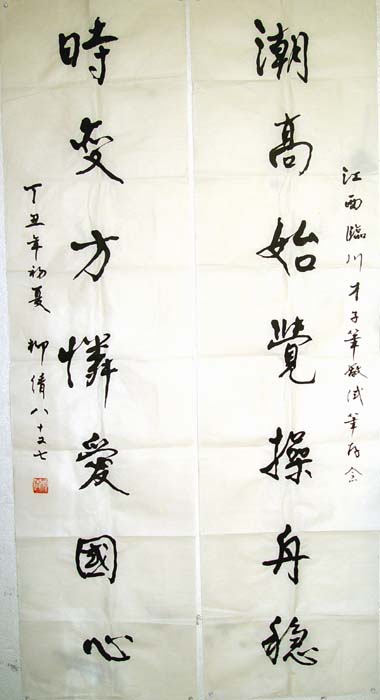 江西臨川才子筆啟試筆存念
潮高始覺操舟穩
時变方憐愛國心
丁丑年初夏 柳倩八十又七